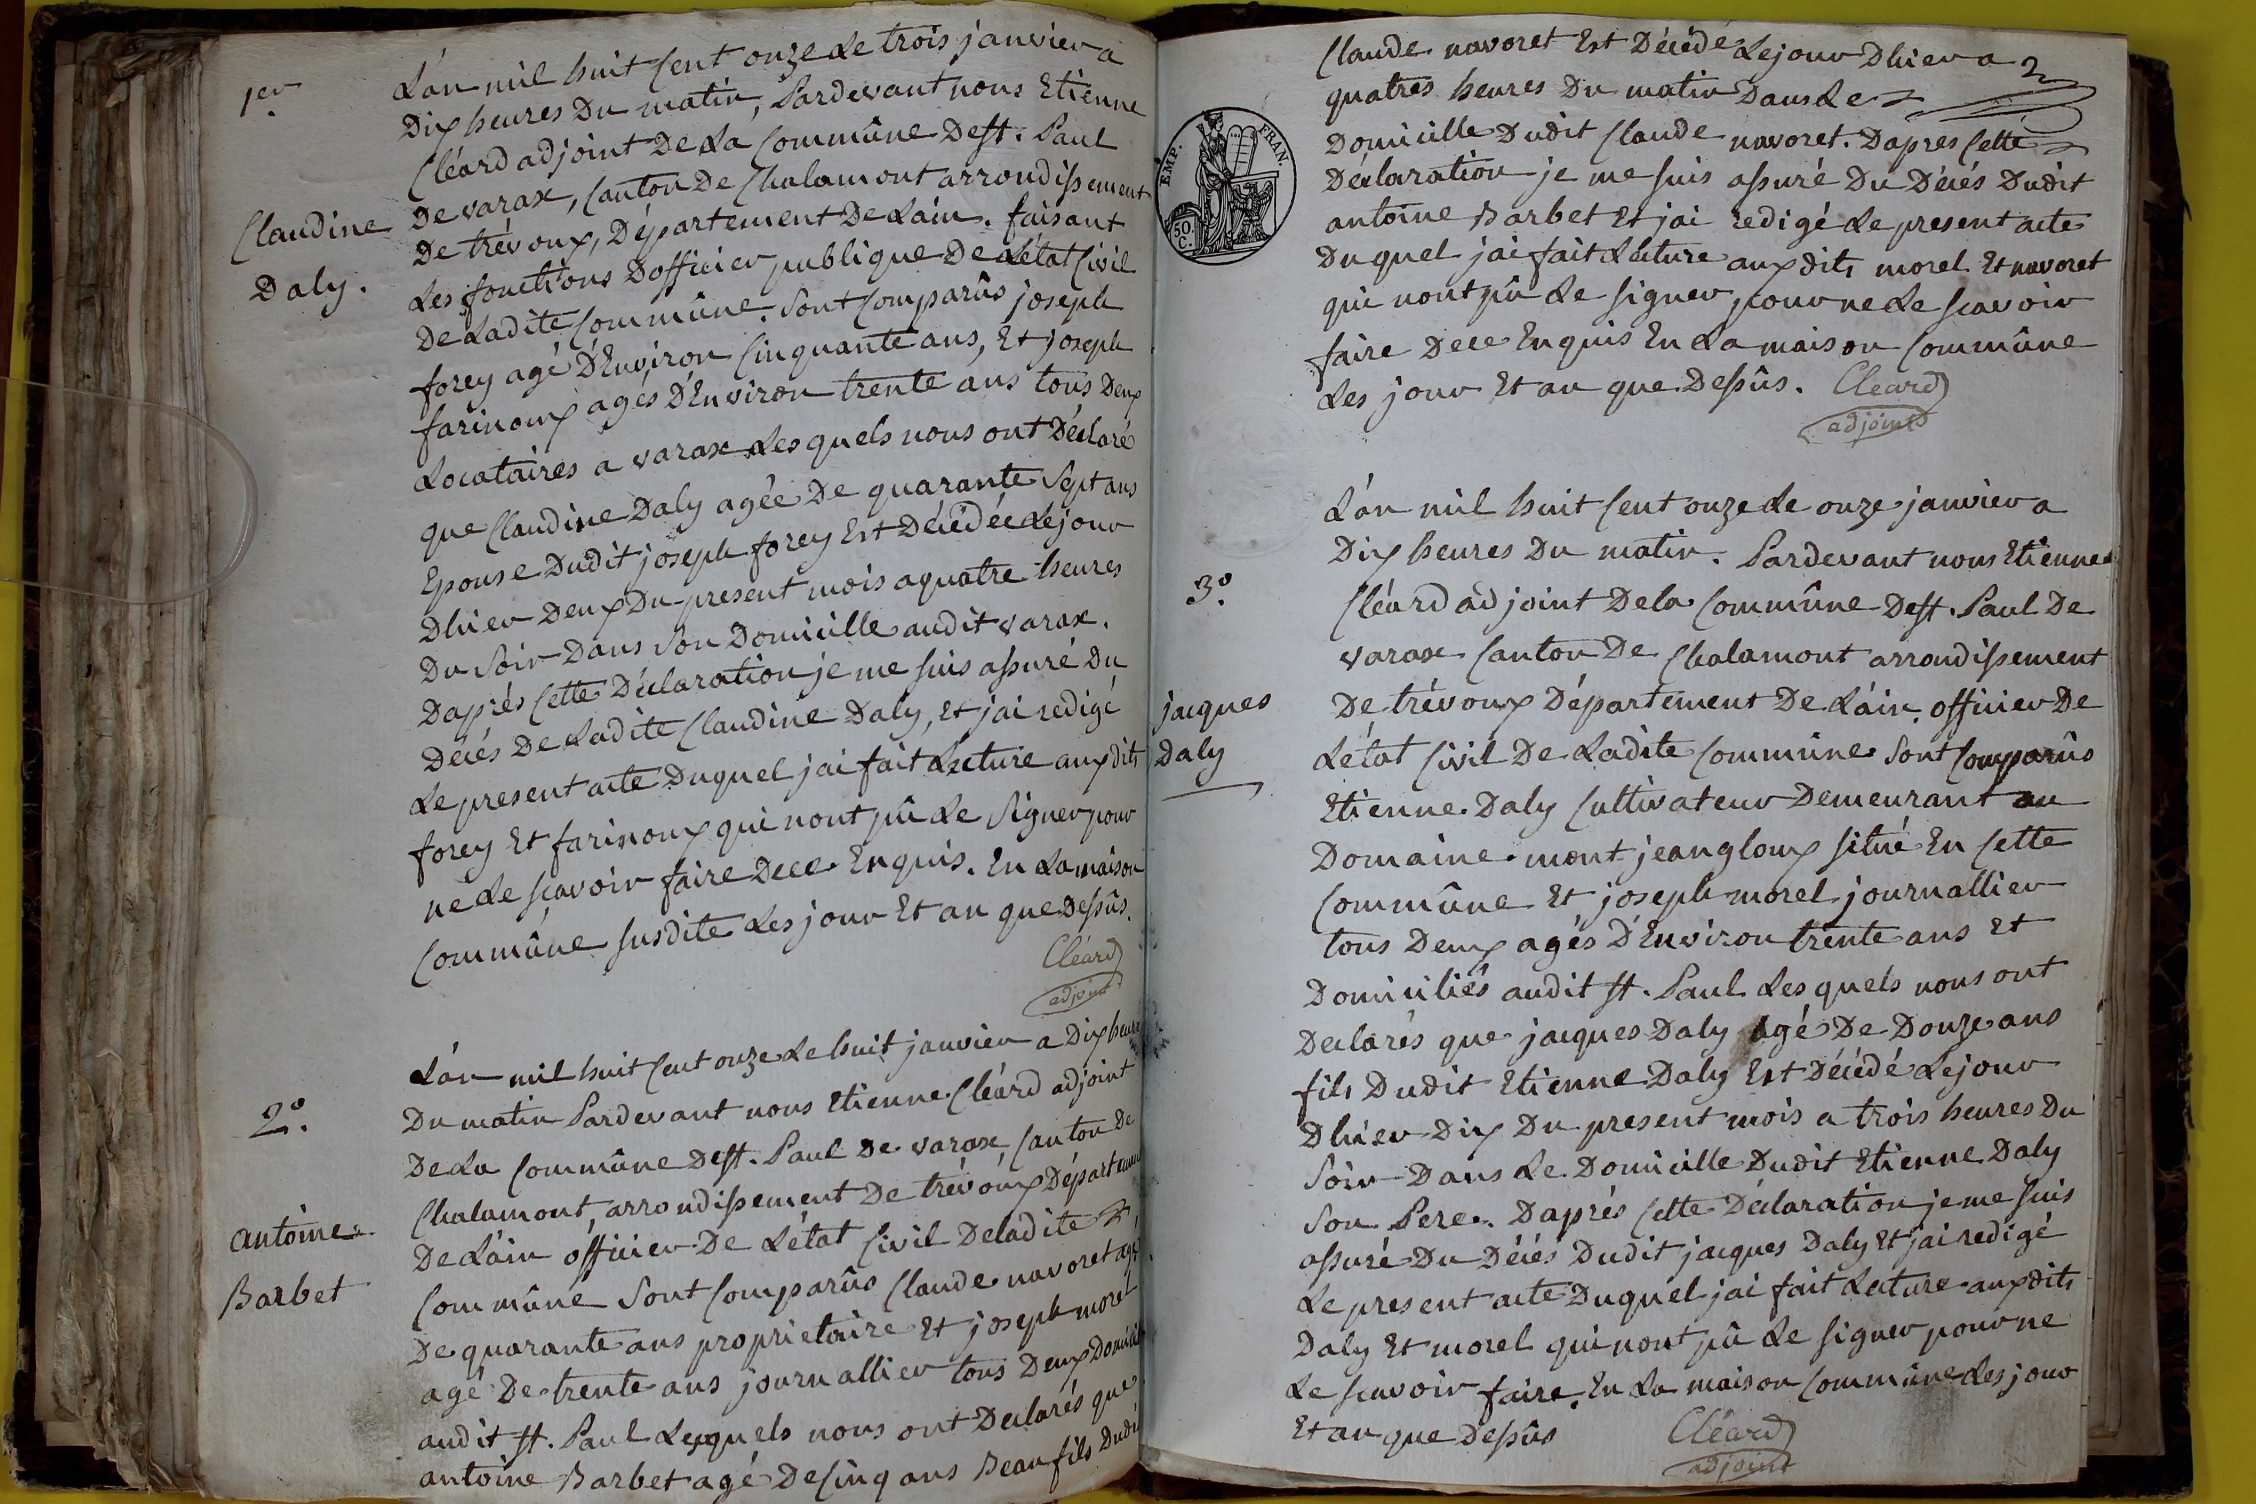 1er
L'an mil huit Cent onze Le trois janvier a
Dix heures Du matin, Pardevant nous Etienne
Cléard adjoint De La Commûne De st. Paul
De varax, Canton De Chalamont arrondissement
Claudine
Daly.
De trévoux, Département De Lain. faisant
Les fonctions Dofficier publique De Létat Civil
De Ladite Commûne. Sont Comparûs joseph
forey agé D'Environ Cinquante ans, Et joseph
farinoux agés D'Environ trente ans tous Deux
Locataires a varax Lesquels nous ont Déclaré
que Claudine Daly agée De quarante Sept ans
Epouse Dudit joseph forey Est Décédée Lejour
Dhier Deux Du present mois a quatre heures
Du Soir Dans Son Domicille audit varax.
Daprés Cette Déclaration je me suis assuré Du
Décés De Ladite Claudine Daly, Et jai redigé
Le present acte Duquel jai fait Lecture auxdits
forey Et farinoux qui nont pû Le Signer pour
ne Le scavoir faire Dece Enquis. En La maison
Commûne susdite Les jour Et an que Dessûs.
Cléard
adjoint
2o.
L'an mil huit Cent onze Le huit janvier a Dix heure
Du matin Pardevant nous Etienne Cléard adjoint
De La Commûne De st. Paul De varax, Canton De
Chalamont, arrondissement De trévoux Département
antoine
Barbet
De L'ain officier De Létat Civil De ladite
Commûne Sont Comparûs Claude navoret agé
De quarante ans proprietaire Et joseph morel
agé De trente ans journallier tous Deux Domicilié
audit st. Paul Lesquels nous ont Déclarés que
antoine Barbet agé De Cinq ans Beaufils Dudit
Claude navoret Est Décédé Le jour Dhier a
quatres heures Du matin Dans Le
EMP. FRAN.
50. C.
Domicille Dudit Claude navoret. Dapres Cette
Déclaration je me suis assuré Du Décés Dudit
antoine Barbet Et jai redigé Le present acte
Duquel jai fait Lecture auxdits morel Et navoret
qui nont pû Le signer pour ne Le scavoir
faire Dece Enquis En La maison Commûne
Les jour Et an que Dessûs. Cléard
adjoint
L'an mil huit Cent onze Le onze janvier a
Dix heures Du matin. Pardevant nous Etienne
3o.
Cléard adjoint De la Commûne De st. Paul De
varax Canton De Chalamont arrondissement
jacques
Daly
De trévoux Département De L'ain, officier De
Létat Civil De Ladite Commûne Sont Comparûs
Etienne Daly Cultivateur Demeurant au
Domaine mont jeangloux situé En Cette
Commûne Et joseph morel journallier
tous Deux agés D'Environ trente ans Et
Domiciliés audit st. Paul Lesquels nous ont
Declarés que jacques Daly agé De Douze ans
fils Dudit Etienne Daly Est Décédé Le jour
Dhier Dix Du present mois a trois heures Du
Soir Dans Le Domicille Dudit Etienne Daly
Son Pere. Daprés Cette Déclaration je me suis
assuré Du Décés Dudit jacques Daly Et jai redigé
Le present acte Duquel jai fait Lecture auxdits
Daly Et morel qui nont pû Le signer pour ne
Le scavoir faire. En La maison Commûne Les jour
Et an que Dessûs Cléard
adjoint